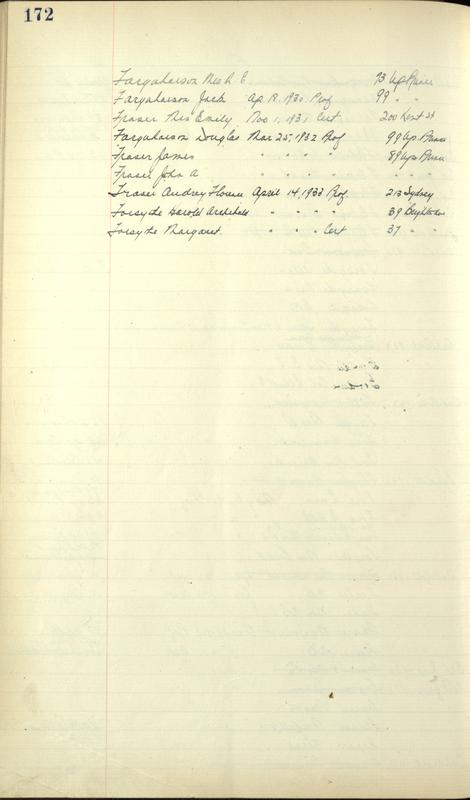 172
Farquharson Mrs R E 73 Up Prince
Farquharson Jack Ap 19, 1930 Prof 99 " "
Fraser Mrs Emily Nov 1, 1931 Cert 200 Kent St
Farquharson Douglas Mar 25, 1932 Prof 99 Up. Prince
Fraser James " " " " 89 Up Prince
Fraser John A " " " " " " "
Fraser Audrey Florence April 14, 1933 Prof. 213 Sydney
Forsythe Harold Archibald " " " " 39 Brighton
Forsythe Margaret " " " Cert 37 " "